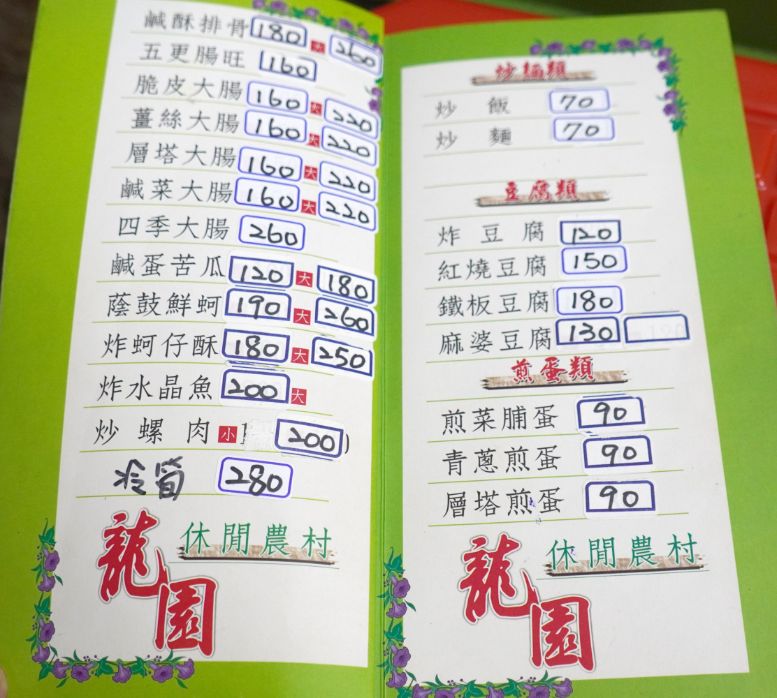 鹹酥排骨 180 大 260
五更腸旺 160
脆皮大腸 160 大 220
薑絲大腸 160 大 220
層塔大腸 160 大 220
鹹菜大腸 160 大 220
四季大腸 260
鹹蛋苦瓜 120 大 180
蔭鼓鮮蚵 190 大 260
炸蚵仔酥 180 大 250
炸水晶魚 200 大
炒螺肉 小 200
冷筍 280
龍園 休閒農村
炒麵類
炒飯 70
炒麵 70
豆腐類
炸豆腐 120
紅燒豆腐 150
鐵板豆腐 180
麻婆豆腐 130
煎蛋類
煎菜脯蛋 90
青蔥煎蛋 90
層塔煎蛋 90
龍園 休閒農村